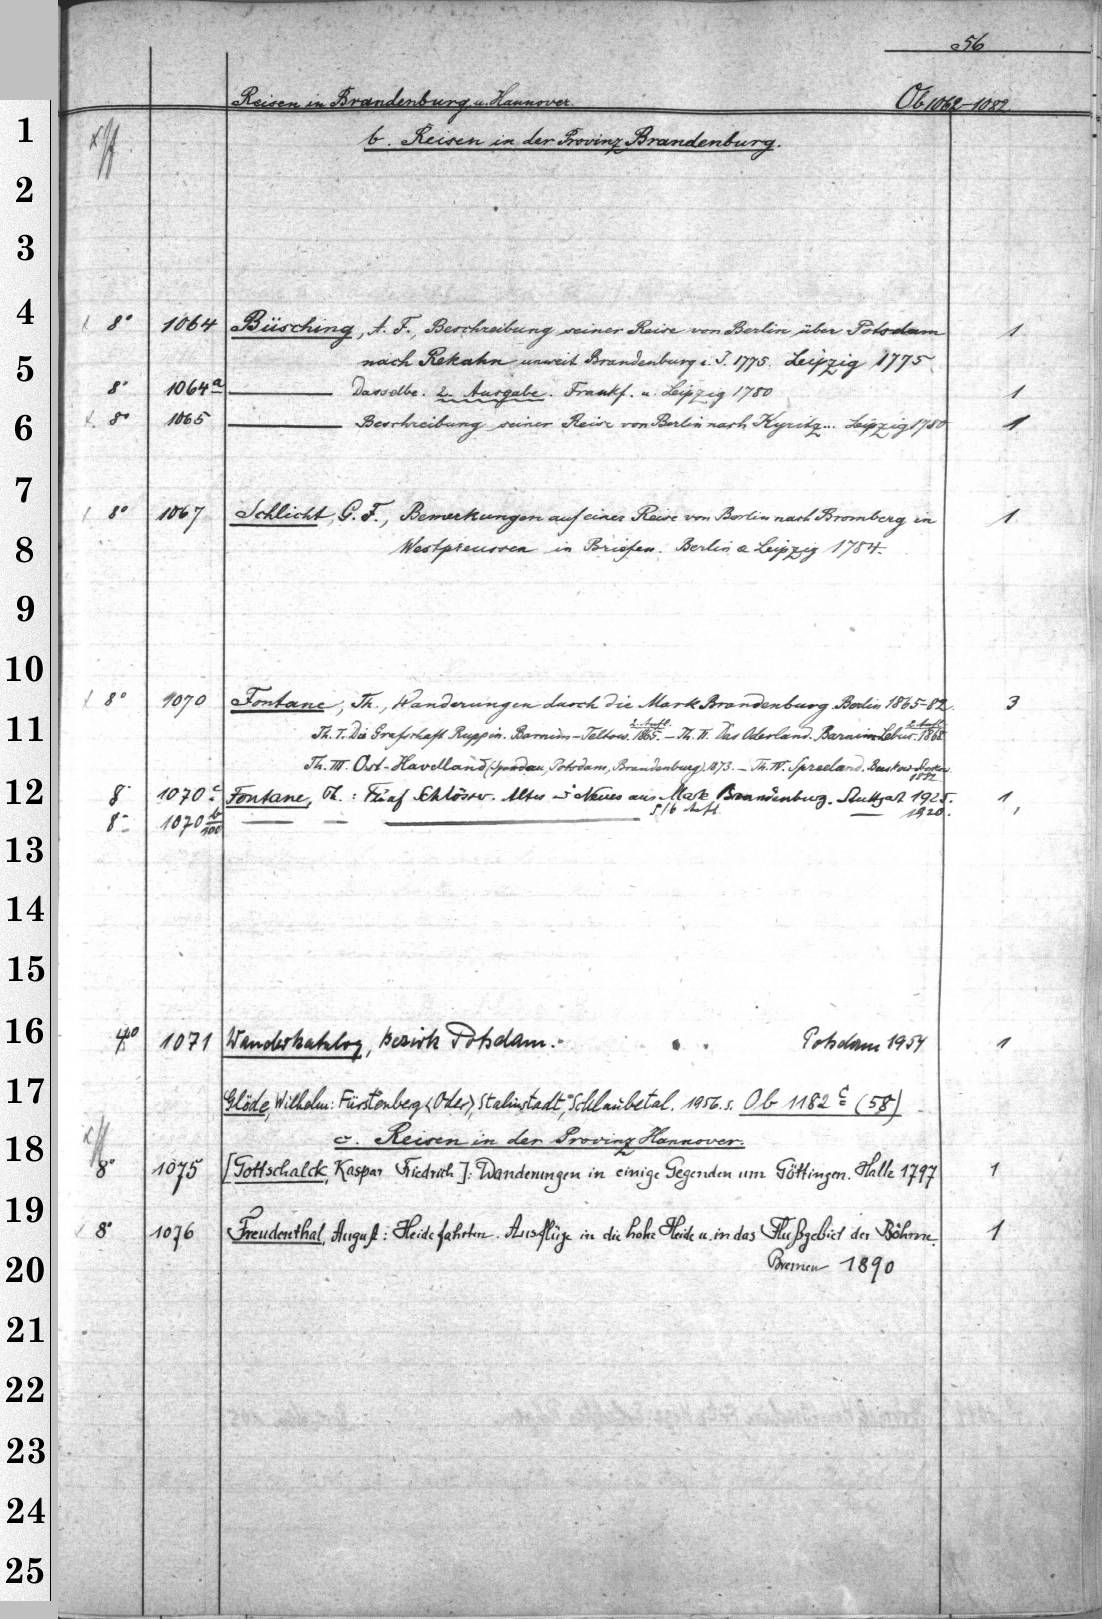 56
Reisen in Brandenburg u. Hannover. Ob 1062-1082.
1
b. Reisen in der Provinz Brandenburg.
2
3
4 8° 1064 Büsching, A. F., Beschreibung seiner Reise von Berlin über Potsdam 1
nach Rekahn unweit Brandenburg i. J. 1775. Leipzig 1775.
5 8° 1064a Dasselbe. 2. Ausgabe. Frankf. u. Leipzig 1780 1
6 8° 1065 Beschreibung seiner Reise von Berlin nach Kyritz... Leipzig 1780 1
7 8° 1067 Schlicht, G. F., Bemerkungen auf einer Reise von Berlin nach Bromberg in 1
8 Westpreussen in Briefen. Berlin & Leipzig 1784.
9
10 8° 1070 Fontane, Th., Wanderungen durch die Mark Brandenburg. Berlin 1865-82. 3
2. Aufl. 2. Aufl.
11 Th. I. Die Grafschaft Ruppin. Barnim-Teltow. 1865. - Th. II. Das Oderland. Barnim-Lebus. 1868.
Th. III. Ost-Havelland (Spandau, Potsdam, Brandenburg) 1873. - Th. IV. Spreeland. Beeskow-Storkow
1882
12 8° 1070c Fontane, Th.: Fünf Schlösser. Altes u. Neues aus Mark Brandenburg. Stuttgart 1925. 1
5/6 Aufl.
8° 1070 b/100 — — — — 1920. 1
13
14
15
16 4° 1071 Wanderkatalog, Bezirk Potsdam. Potsdam 1954 1
17 Glöde, Wilhelm: Fürstenberg <Oder>, Stalinstadt, Schlaubetal. 1956. s. Ob 1182c (58)
c. Reisen in der Provinz Hannover.
18 8° 1075 [Gottschalck, Kaspar Friedrich]: Wanderungen in einige Gegenden um Göttingen. Halle 1797 1
19 8° 1076 Freudenthal, August: Heidefahrten. Ausflüge in die hohe Heide u. in das Flußgebiet der Böhme. 1
20 Bremen 1890
21
22
23
24
25